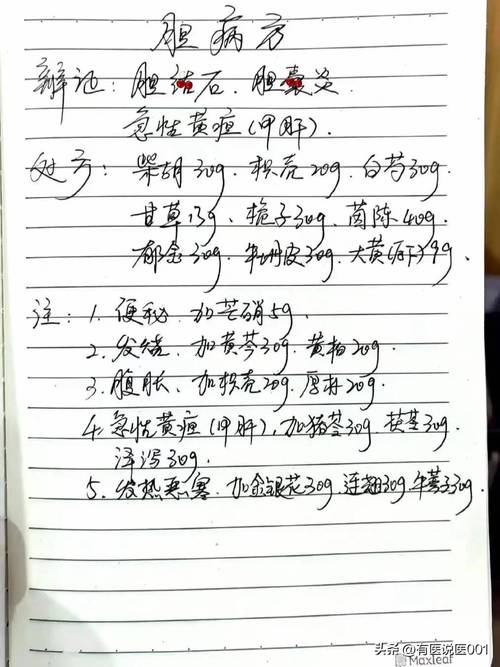 胆病方
辩证：胆结石、胆囊炎
急性黄疸(甲肝).
处方：柴胡30g. 枳壳20g. 白芍30g.
甘草13g、栀子30g、茵陈40g.
郁金30g. 牛丹皮30g、大黄(后下)9g
注：1. 便秘、加芒硝5g、
2. 发烧、加黄芩30g. 黄柏20g.
3. 腹胀、加枳壳20g. 厚朴20g.
4. 急性黄疸(甲肝), 加猪苓30g. 茯苓30g.
泽泻30g.
5. 发热恶寒、加金银花30g、连翘30g、牛蒡子30g.
头条 @有医说医001
Maxleaf